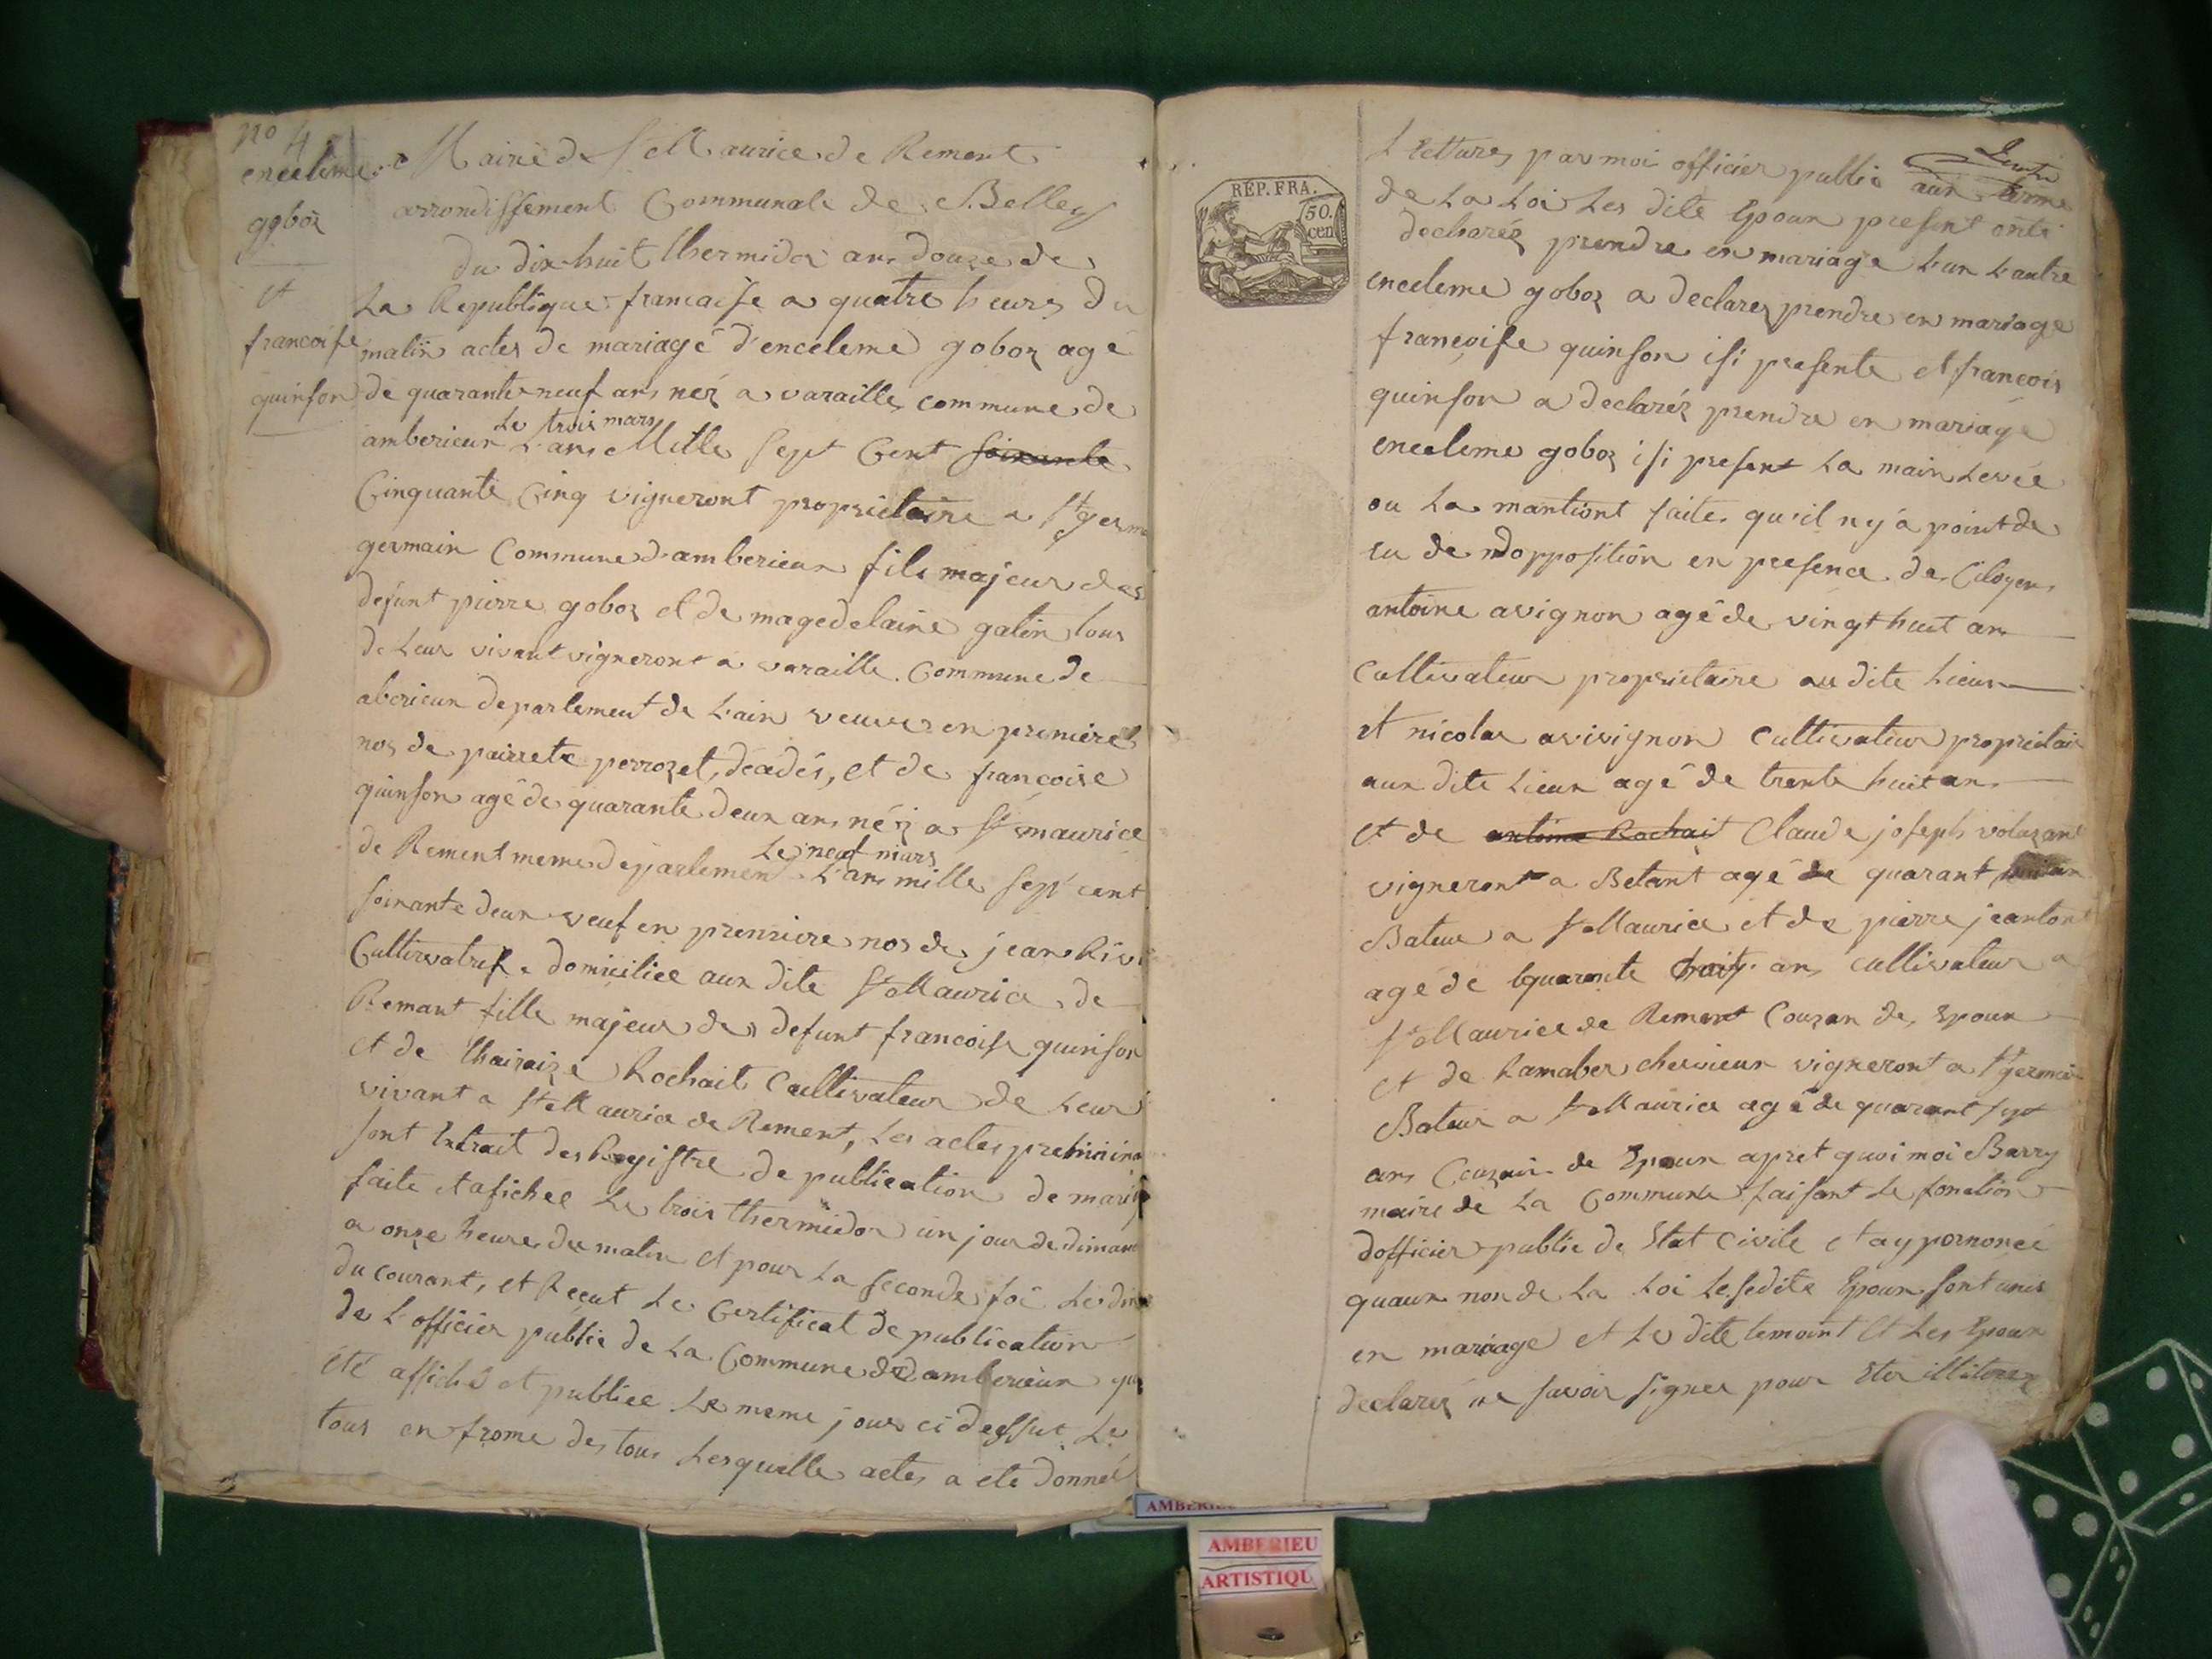 no 4
enceleme
goboz
et
francoise
quinson
Mairie de St Maurice de Rement
arrondissement Communale de Belley
du dix huit thermidor an douze de
La Republique francaise a quatre heures du
matin actes de mariage d'enceleme goboz agé
de quarante neuf ans néz a varaille commune de
Le trois mars
amberieux L'an Mille Sept Cent soixante
Cinquante Cinq vigneront proprietaire a St germ
germain Commune d'amberieux fils majeur des
defunt pierre goboz et de magedelaine gatin tous
de Leur vivant vigneront a varaille Commune de
aberieux departement de L'ain veuve en premiere
nos de pairrete perrozet, décédés, et de francoise
quinson agé de quarante deux ans néz a St maurice
Le neuf mars
de Rement meme departement L'an mille sept cent
soixante deux veuf en premiere nos de jean Rivi
Cultivatrise domiciliee aux dite St Maurice de
Remant fille majeur des defunt francoise quinson
et de thairaize Rochait Cultivateur de Leur
vivant a St Maurice de Rement, Les actes prelimina
sont Extrait des Registre de publication de mari
faite et afichee Le trois thermidor un jour de diman
a onze heures du matin et pour La seconde foi Le dix
du courant, et Recut Le Certificat de publication
de L'officier public de La Commune de damberieux qu
été affiché et publiee Le meme jour ci dessut Le
tous en frome des tous Lesquelle actes a ete donneé
RÉP. FRA.
50.
cen
Lettures par moi officier public aux terme
de La Loi Les dite Epoux present onté
declaréz prendre en mariage L'un L'autre
enceleme goboz a declarez prendre en mariage
francoise quinson isi presente et francois
quinson a declaréz prendre en mariage
enceleme goboz isi present La main Levée
ou La mantiont faites qu'il ny a point de
eu de ndopposition en presence de Citoyen
antoine avignon agé de vingt huit an
Cultivateur proprietaire au dite Lieux
et nicolas avivignon Cultivateur proprietair
aux dite Lieux agé de trente huit an
et de antoine Rochait Claude joseph volazant
vigneront a Betant agé de quarant huit an
Bateur a St Maurice et de pierre jeanton
agé de quarante huit an cultivateur a
St Maurice de Rement Couzan de Epoux
et de Lamaber chervieux vigneront a St germain
Bateur a St Maurice agé de quarant sept
ans Couzain de Epoux apret quoi moi Barry
maire de La Commune faisant Le fonction
dofficier public de Etat Civile et ay pornoncé
quaux non de La Loi Lesedite Epoux sont unis
en mariage et Le dite temoint et Les Epoux
declarez ne savoir signer pour Eter illitorez
AMBERIEU
ARTISTIQU